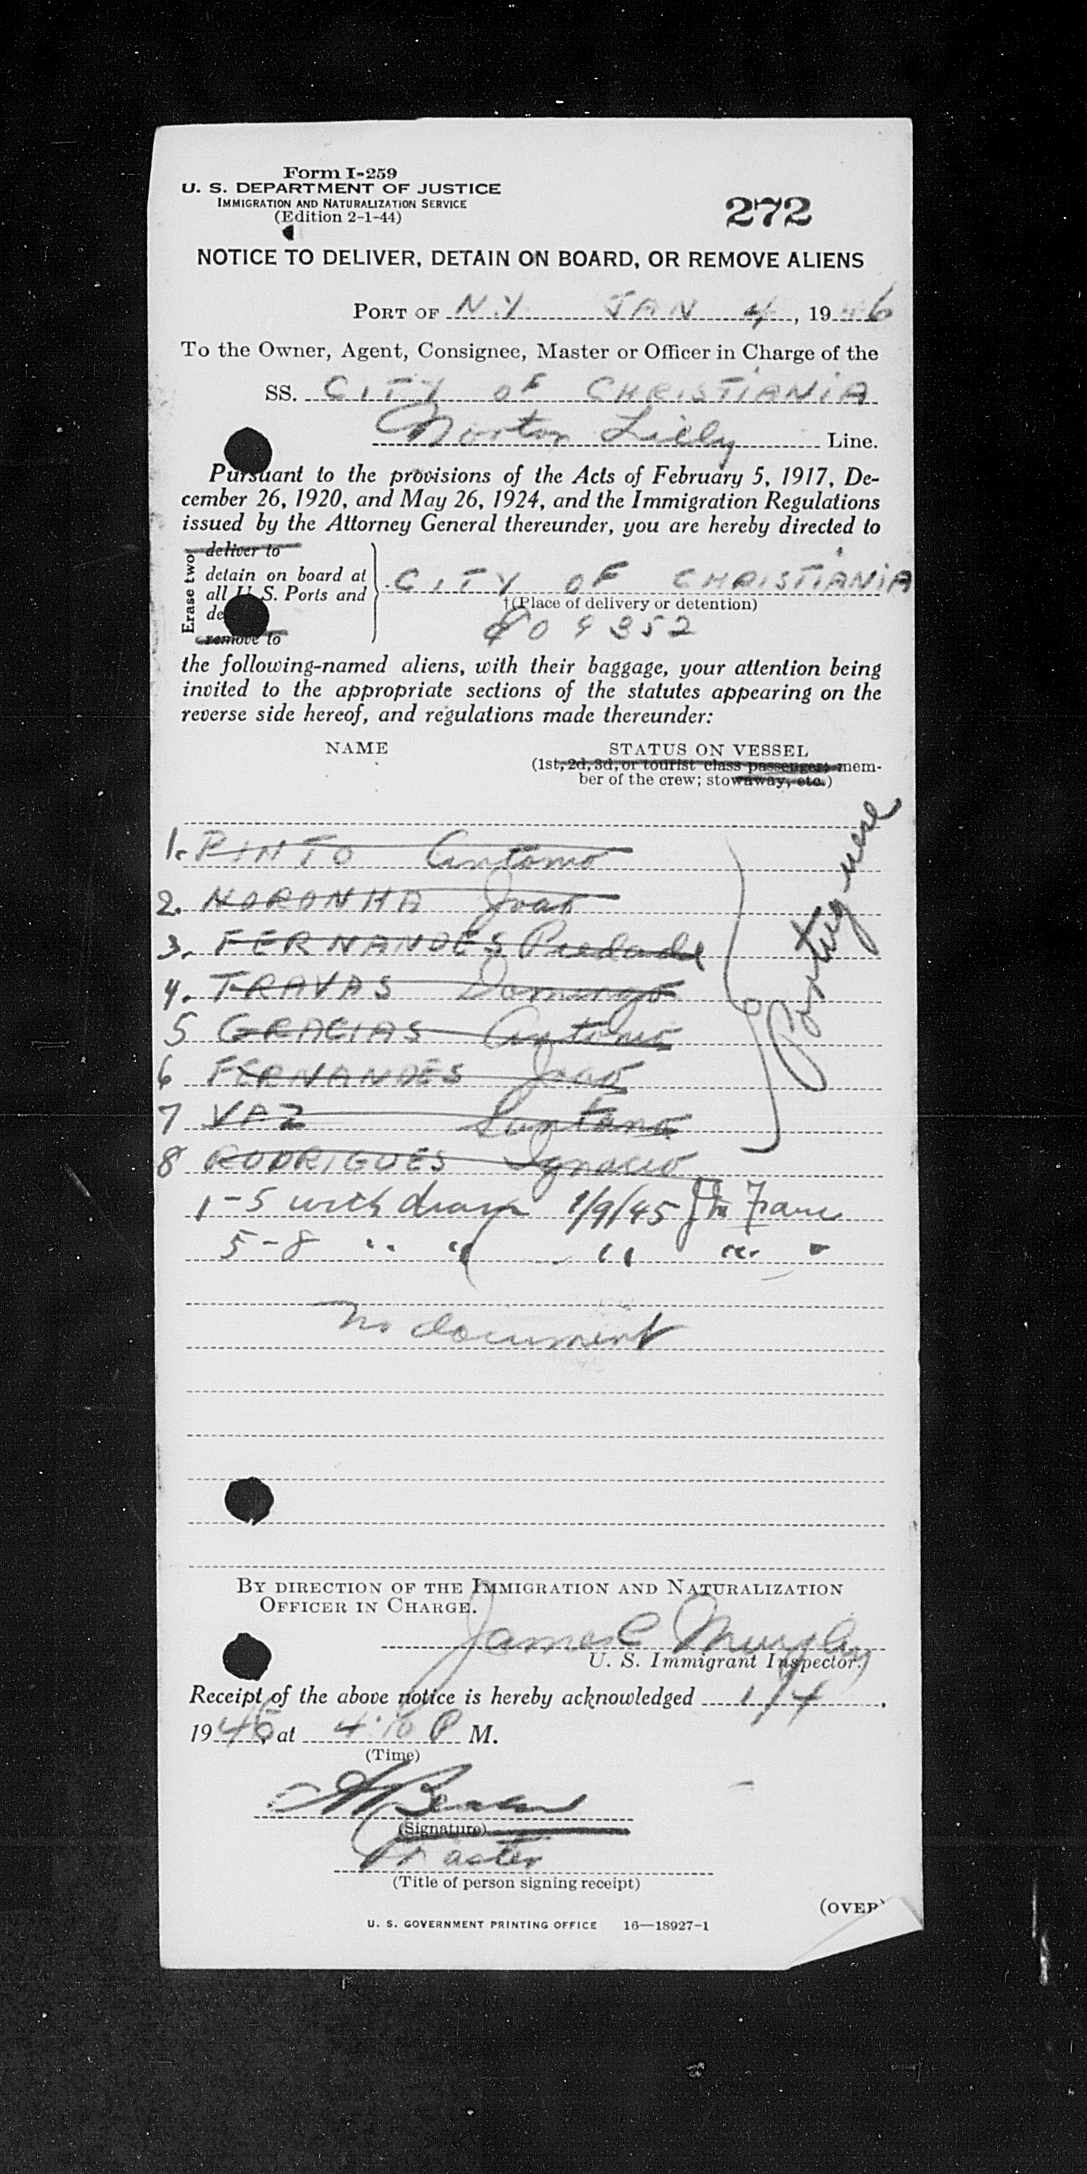 Form I-259
U. S. DEPARTMENT OF JUSTICE
IMMIGRATION AND NATURALIZATION SERVICE
(Edition 2-1-44)
272
NOTICE TO DELIVER, DETAIN ON BOARD, OR REMOVE ALIENS
PORT OF N.Y. JAN 4, 1946
To the Owner, Agent, Consignee, Master or Officer in Charge of the
SS. CITY OF CHRISTIANIA
Norton Lilly Line.
Pursuant to the provisions of the Acts of February 5, 1917, De-
cember 26, 1920, and May 26, 1924, and the Immigration Regulations
issued by the Attorney General thereunder, you are hereby directed to
Erase two
deliver to
detain on board at
all U.S. Ports and
de
remove to
CITY OF CHRISTIANIA
†(Place of delivery or detention)
809352
the following-named aliens, with their baggage, your attention being
invited to the appropriate sections of the statutes appearing on the
reverse side hereof, and regulations made thereunder:
NAME
STATUS ON VESSEL
(1st, 2d, 3d, or tourist class passenger; mem-
ber of the crew; stowaway, etc.)
1. PINTO Antonio
2. NORONHA Joao
3. FERNANDES Piedade
4. TRAVAS Domingo
5 GRACIAS Antonio
6 FERNANDES Joao
7 VAZ Santana
8 RODRIGUES Ignacio
Portuguese
1-5 withdrawn 1/9/45
5-8 " " " " "
No document
BY DIRECTION OF THE IMMIGRATION AND NATURALIZATION
OFFICER IN CHARGE.
James C Murphy
U. S. Immigrant Inspector.
Receipt of the above notice is hereby acknowledged 1/4,
1946, at 4:10 P M.
(Time)
(Signature)
Master
(Title of person signing receipt)
(OVER)
U. S. GOVERNMENT PRINTING OFFICE 16—18927-1